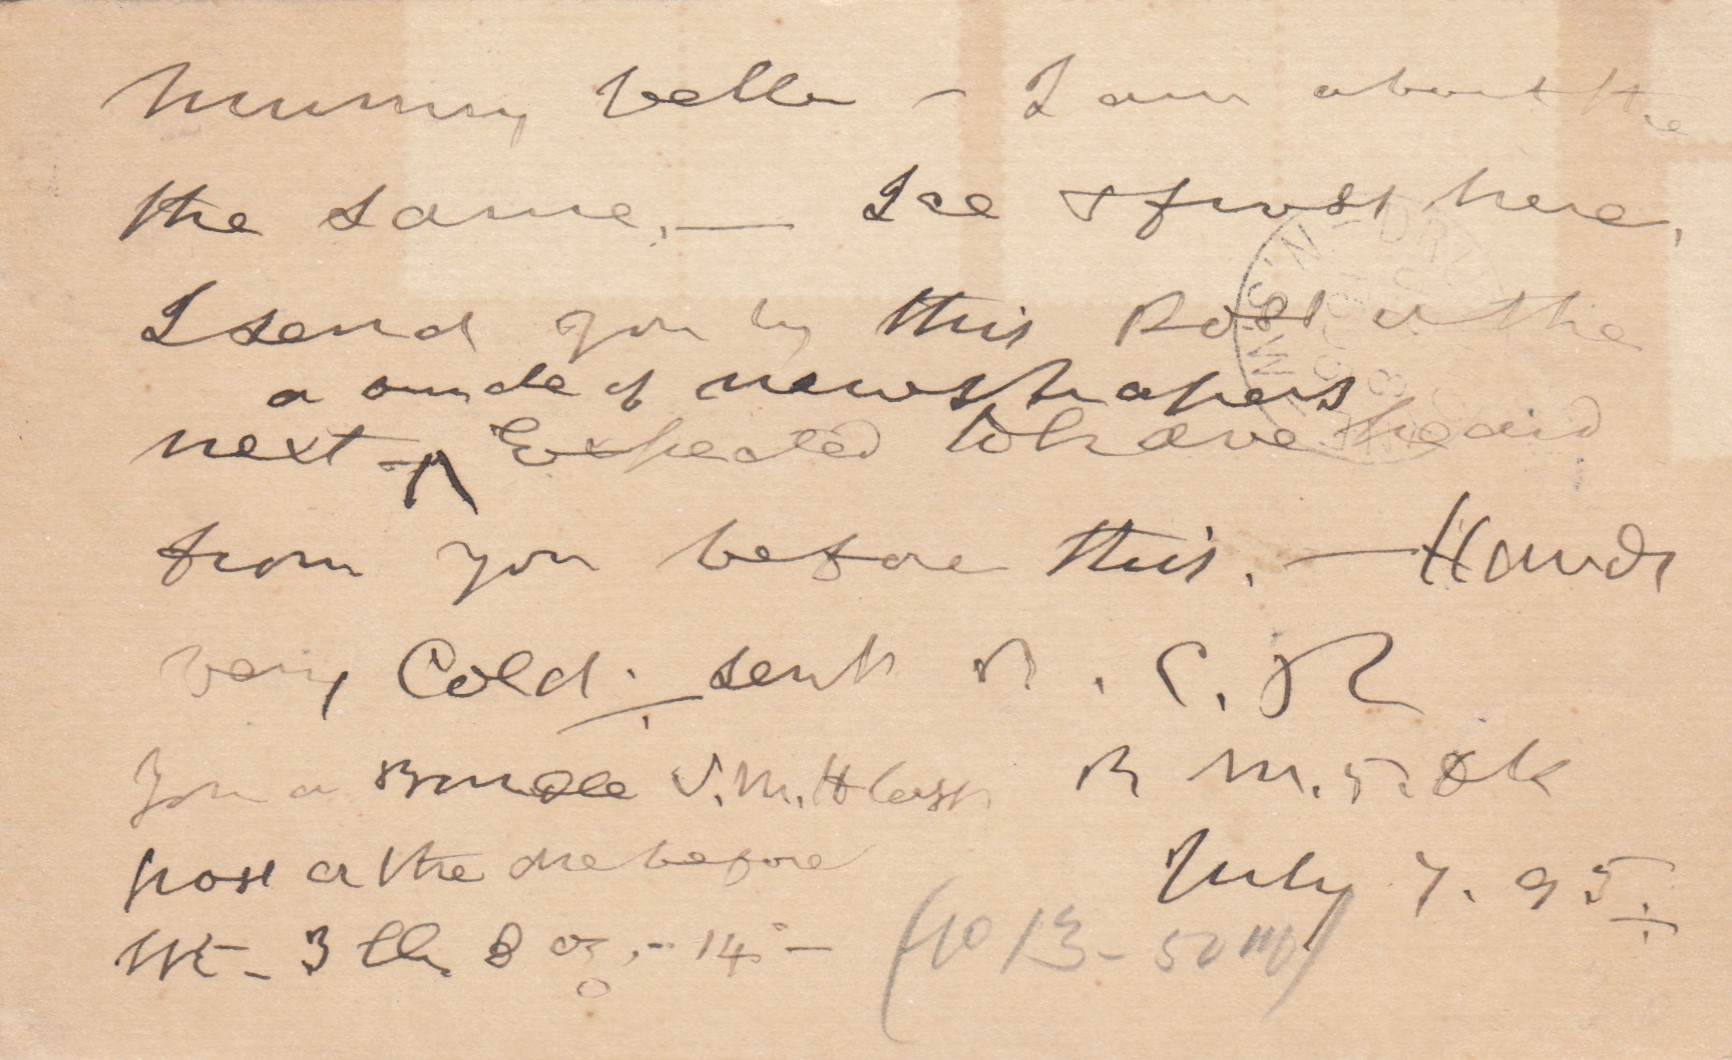 Mummy better – I am about the
the same. — Ice & frost here,
I send you by this Post or the
a bundle of newspapers
next – ^ Expected to have heard
from you before this. — Hands
very Cold. – sent
You a Bundle S.M.H
post or the one before
July 7. 95.
Wt – 3 lb. 8 oz. –